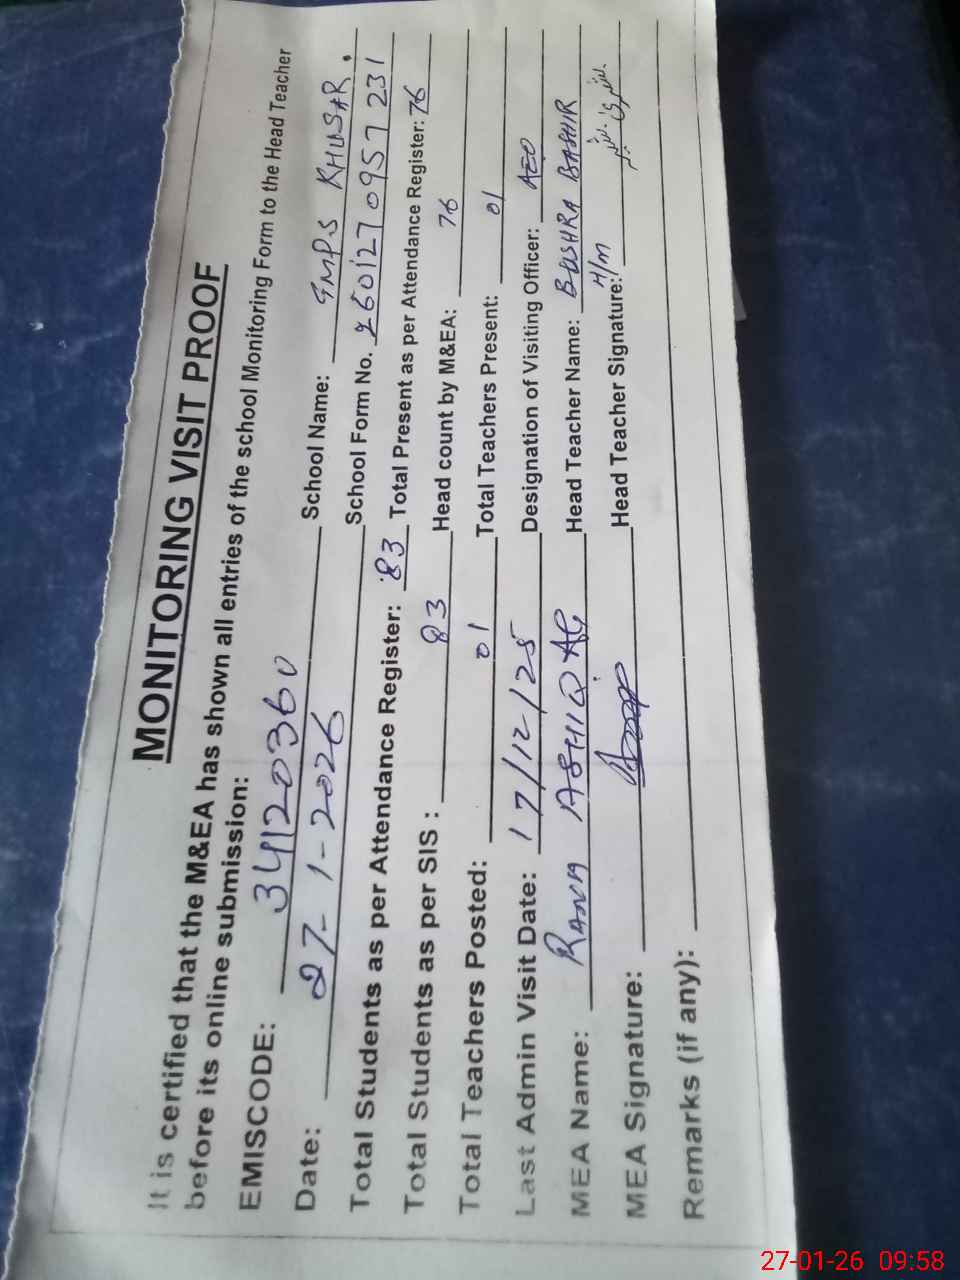 MONITORING VISIT PROOF
It is certified that the M&EA has shown all entries of the school Monitoring Form to the Head Teacher
before its online submission:
EMISCODE: 34120360 School Name: GMPS KHUSAR.
Date: 27-1-2026 School Form No. 2601270957231
Total Students as per Attendance Register: 83 Total Present as per Attendance Register: 76
Total Students as per SIS : 83 Head count by M&EA: 76
Total Teachers Posted: 01 Total Teachers Present: 01
Last Admin Visit Date: 17/12/25 Designation of Visiting Officer: AEO
MEA Name: RANA ASHFAQ Head Teacher Name: BUSHRA BASHIR
H/M
MEA Signature: Head Teacher Signature: بشریٰ بشیر
Remarks (if any):
27-01-26 09:58